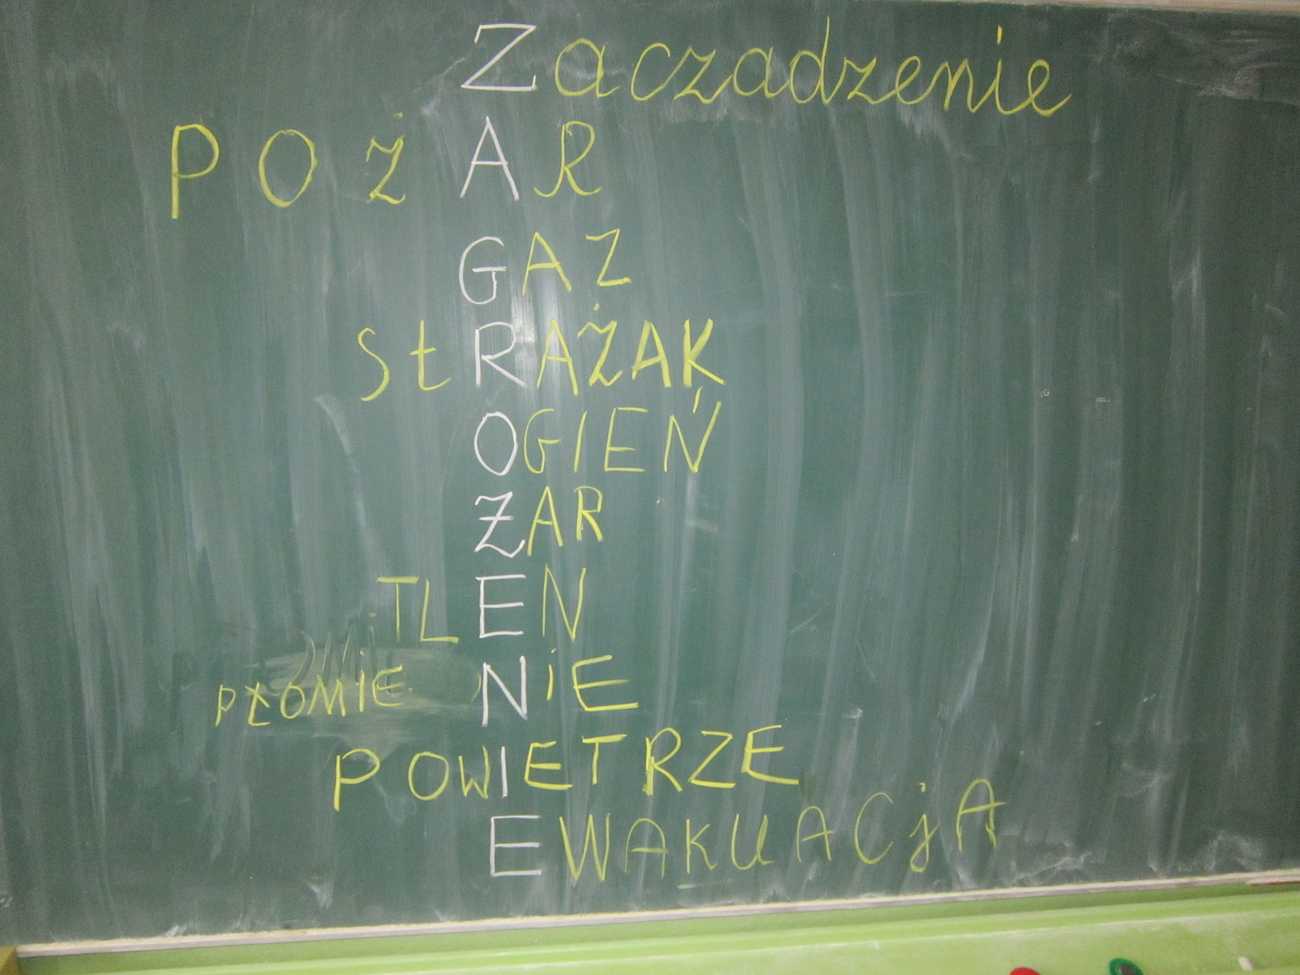 Zaczadzenie
POŻAR
GAZ
StRAŻAK
OGIEŃ
ŻAR
TLEN
PŁOMIENiE
POWIETRZE
EWAKUACjA